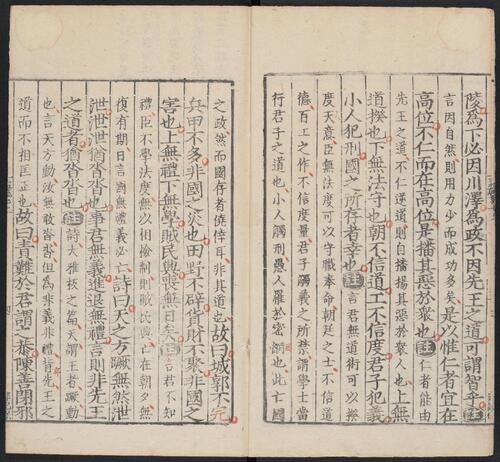 陵為下必因川澤為政不因先王之道可謂智乎註
言因自然則用力少而成功多矣是以惟仁者宜在
高位不仁而在高位是播其惡於衆也註仁者能由
先王之道不仁逆道則自播揚其惡於衆人也上無
道揆也下無法守也朝不信道工不信度君子犯義
小人犯刑國之所存者幸也註言君無道術可以揆
度天意臣無法度可以守職奉命朝廷之士不信道
德百工之作不信度量君子觸義之所禁謂學士當
行君子之道也小人觸刑愚人罹於密網也此亡國
之政然而國存者僥倖耳非其道也故曰城郭不完
兵甲不多非國之災也田野不辟貨財不聚非國之
害也上無禮下無學賊民興喪無日矣註言君不知
禮臣不學法度無以相檢制則賊民興亡在朝夕無
復有期日言國無禮義必亡詩曰天之方蹶無然泄
泄泄泄猶沓沓也事君無義進退無禮言則非先王
之道者猶沓沓也註詩大雅板之篇天謂王者蹶動
也言天方動汝無敢沓沓但為非義非禮背先王之
道而不相匡正也故曰責難於君謂之恭陳善閉邪